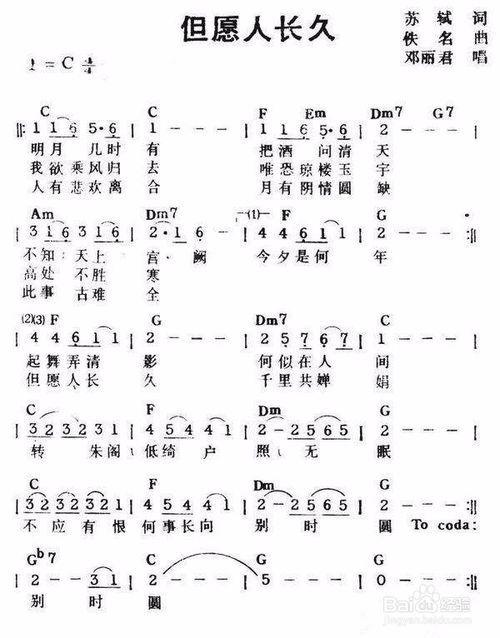 但愿人长久
苏轼 词
佚名 曲
邓丽君 唱
1 = C 4/4
C C F Em Dm7 G7
‖: 1 1 6 5·6 | 1 - - - | 1 1 6 5 6 | 2 - - - |
明月 几时 有 把酒 问清 天
我欲 乘风归 去 唯恐 琼楼玉 宇
人有 悲欢离 合 月有 阴情圆 缺
Am Dm7 (1) F G
3 1 6 3 1 6 | 2 · 1 6 - | 4 4 6 1 1 | 2 - - - :‖
不知 天上 宫 阙 今夕是何 年
高处 不胜 寒
此事 古难 全
(2)(3) F G Dm7 C
| 4 4 6 1 1 | 2 - - - | 2 5 7 6 7 | 1 - - - |
起舞弄清 影 何似在人 间
但愿人长 久 千里共婵 娟
C F Dm G
| 3 2 3 2 3 2 1 | 4 5 4 4 1 | 2 - 2 5 6 5 | 2 - - - |
转 朱阁 低绮户 照 无 眠
C F Dm G
| 3 2 3 2 3 2 1 | 4 5 4 4 1 | 2 - 2 5 6 5 | 2 - - - |
不 应 有 恨 何事长向 别 时 圆 To coda:
Gb7 C G G
| 2 - - 3 1 | 2 - - - | 5 - - - | 0 - - - :‖
别 时 圆
Baidu 经验
jingyan.baidu.com